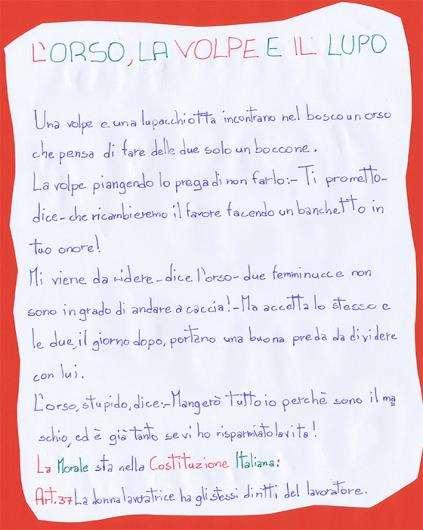 L'ORSO, LA VOLPE E IL LUPO
Una volpe e una lupacchiotta incontrano nel bosco un orso
che pensa di fare delle due solo un boccone.
La volpe piangendo lo prega di non farlo:-Ti prometto-
dice-che ricambieremo il favore facendo un banchetto in
tuo onore!
Mi viene da ridere-dice l'orso-due femminucce non
sono in grado di andare a caccia!-Ma accetta lo stesso e
le due, il giorno dopo, portano una buona preda da dividere
con lui.
L'orso, stupido, dice:-Mangerò tutto io perchè sono il ma
schio, ed è già tanto se vi ho risparmiato la vita!
La Morale sta nella Costituzione Italiana:
Art.37 La donna lavoratrice ha gli stessi diritti del lavoratore.